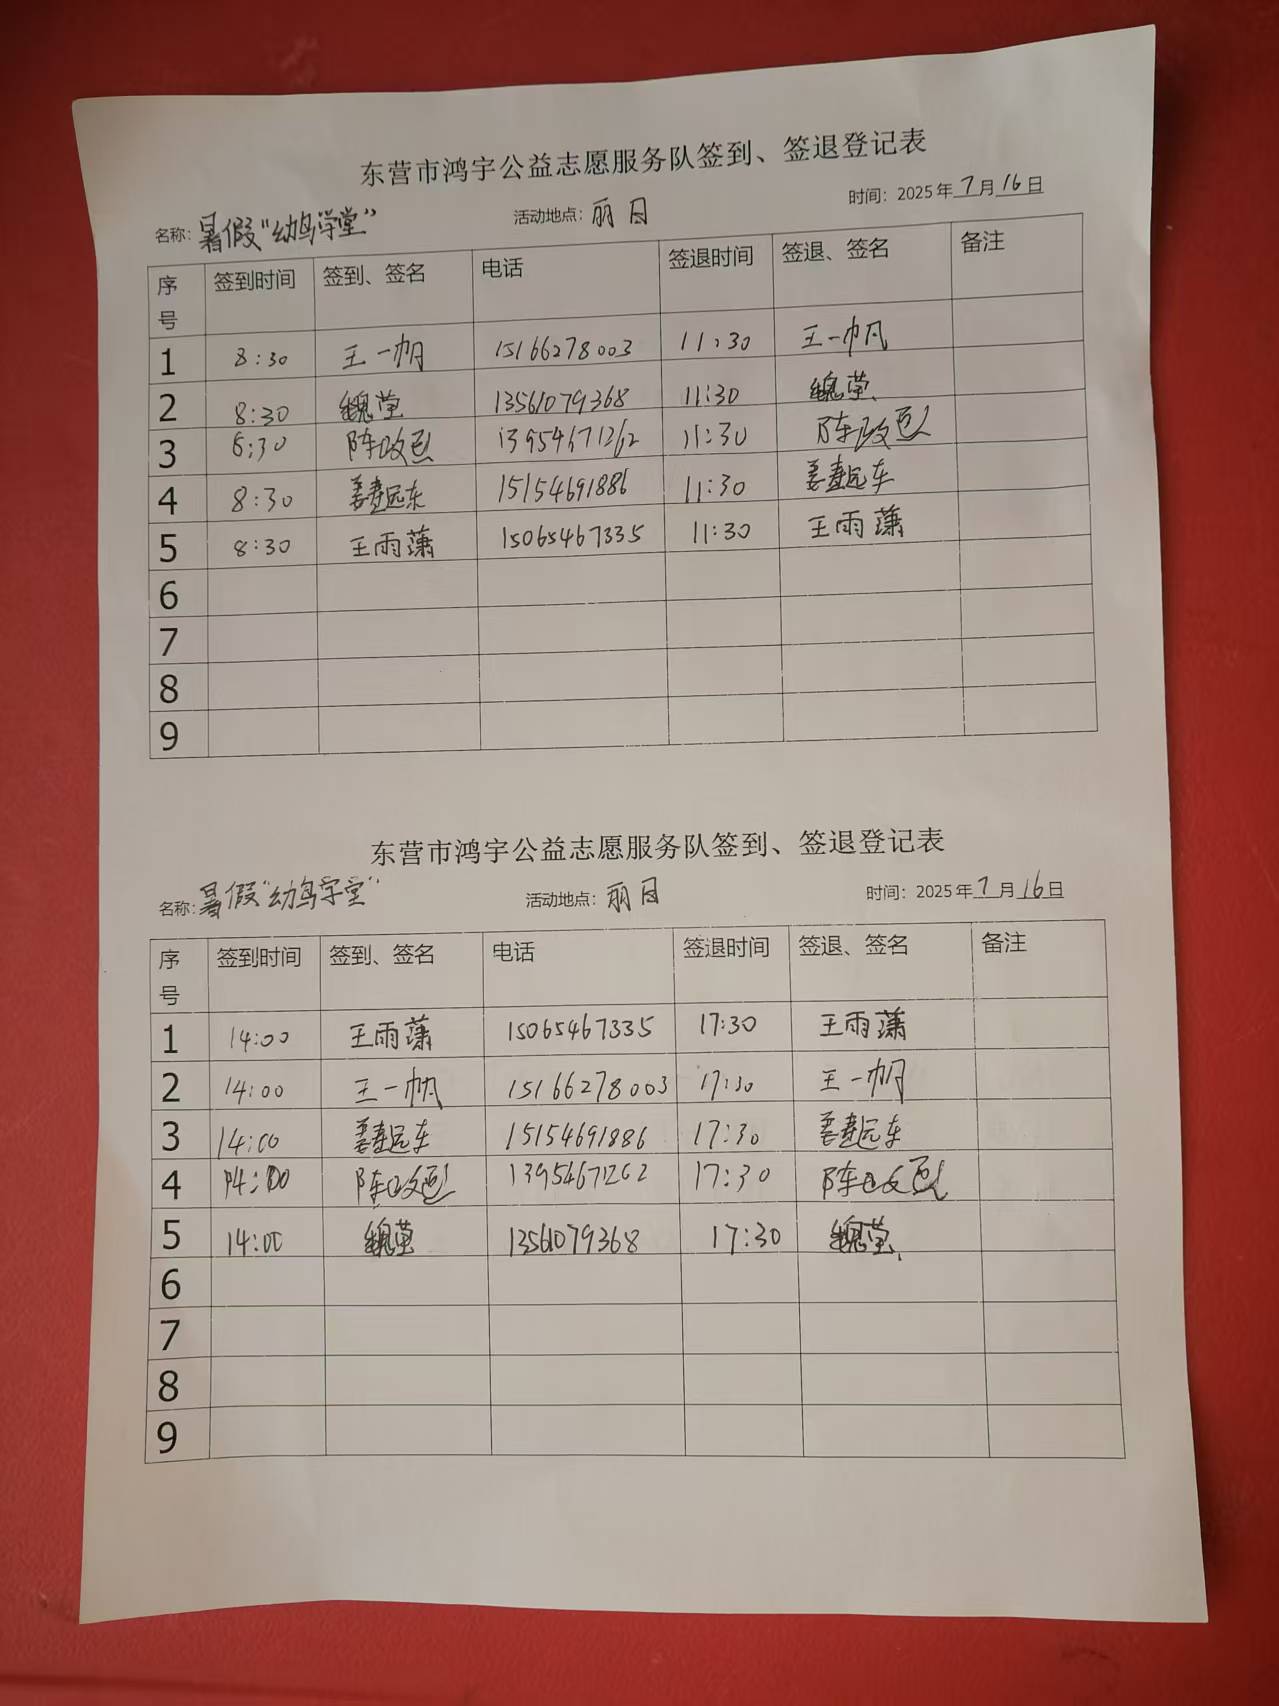 东营市鸿宇公益志愿服务队签到、签退登记表
名称：暑假“幼鸟学堂” 活动地点：丽日 时间：2025年7月16日
序号 签到时间 签到、签名 电话 签退时间 签退、签名 备注
1 8:30 王一帆 15166278003 11:30 王一帆
2 8:30 魏莹 13561079368 11:30 魏莹
3 8:30 陈政烈 13954671262 11:30 陈政烈
4 8:30 姜远东 15154691886 11:30 姜远东
5 8:30 王雨藩 15065467335 11:30 王雨藩
6
7
8
9
东营市鸿宇公益志愿服务队签到、签退登记表
名称：暑假“幼鸟学堂” 活动地点：丽日 时间：2025年7月16日
序号 签到时间 签到、签名 电话 签退时间 签退、签名 备注
1 14:00 王雨藩 15065467335 17:30 王雨藩
2 14:00 王一帆 15166278003 17:30 王一帆
3 14:00 姜远东 15154691886 17:30 姜远东
4 14:00 陈政烈 13954671262 17:30 陈政烈
5 14:00 魏莹 13561079368 17:30 魏莹
6
7
8
9